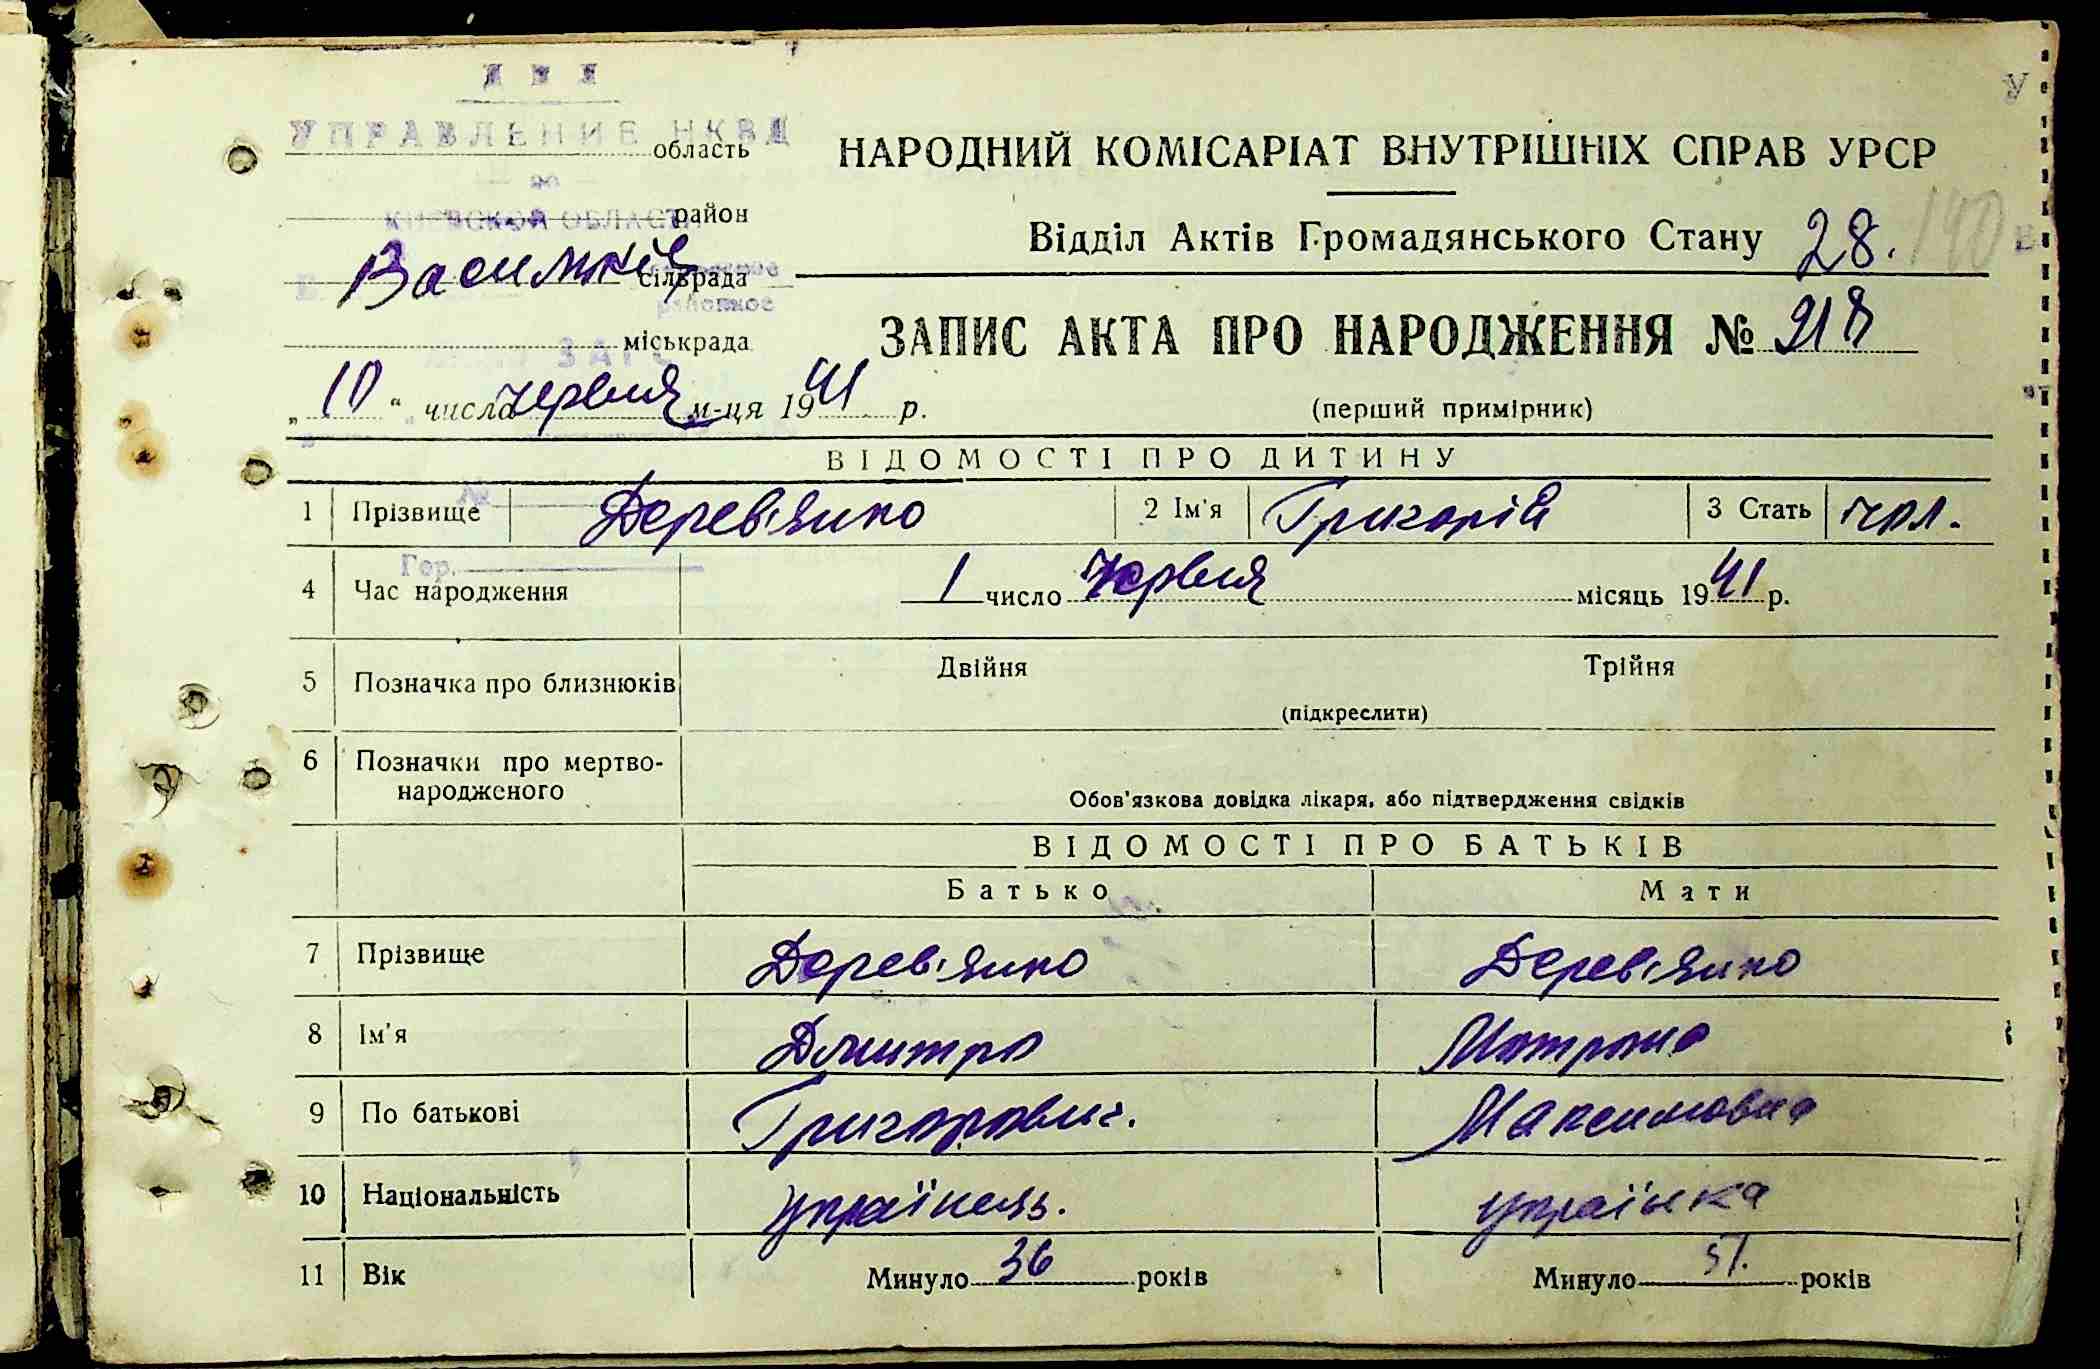 УПРАВЛЕНИЕ НКВД
область
по
КИЕВСКОЙ ОБЛАСТИ
район
Васильків
сільрада
районное
міськрада
ЗАГС
„ 10 “ числа червня м-ця 1941 р.
НАРОДНИЙ КОМІСАРІАТ ВНУТРІШНІХ СПРАВ УРСР
Відділ Актів Громадянського Стану 28. 140
ЗАПИС АКТА ПРО НАРОДЖЕННЯ № 218
(перший примірник)
ВІДОМОСТІ ПРО ДИТИНУ
1 Прізвище Дерев'янко 2 Ім'я Григорій 3 Стать чол.
Гор.
4 Час народження 1 число Червня місяць 1941 р.
5 Позначка про близнюків Двійня Трійня
(підкреслити)
6 Позначки про мертво-
народженого
Обов'язкова довідка лікаря, або підтвердження свідків
ВІДОМОСТІ ПРО БАТЬКІВ
Батько Мати
7 Прізвище Дерев'янко Дерев'янко
8 Ім'я Дмитро Мотрона
9 По батькові Григорович. Максимовна
10 Національність українець. українка
11 Вік Минуло 36 років Минуло років